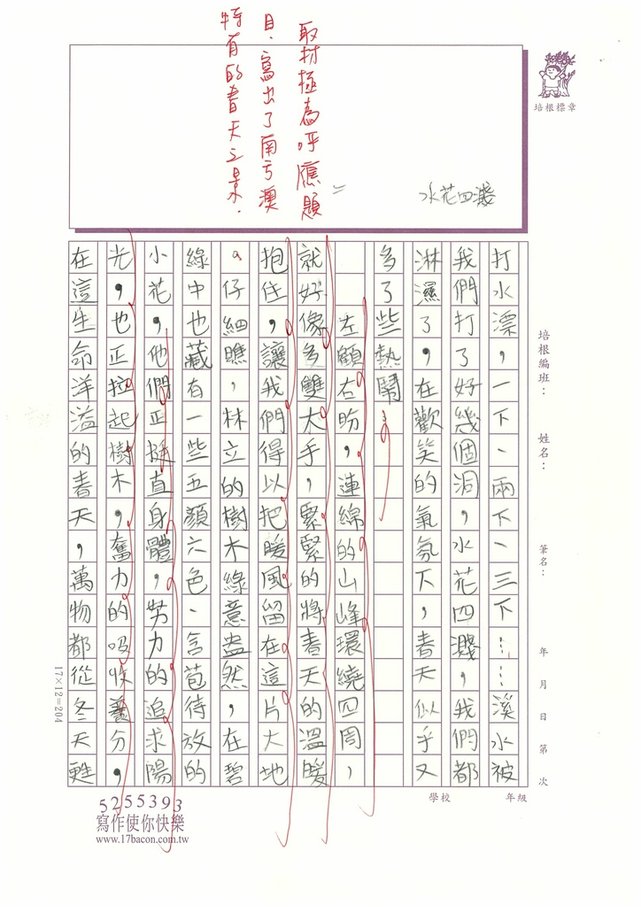 取材極為呼應題
目，寫出了南亏澳
特有的春天之景．
水花四濺
培根標章
培根編班：
姓名：
筆名：
年 月 日 第 次
學校
年級
打水漂，一下、兩下、三下……溪水被
我們打了好幾個洞，水花四濺，我們都
淋濕了，在歡笑的氣氛下，春天，似乎又
多了些熱鬧。
左顧右盼，連綿的山峰環繞四周，
就好像多雙大手，緊緊的將春天的溫暖
抱住，讓我們得以把暖風留在這片大地
。仔細瞧，林立的樹木綠意盎然，在碧
綠中也藏有一些五顏六色、含苞待放的
小花，他們正挺直身體，努力的追求陽
光，也正拉起樹木，奮力的吸收養分，
在這生命洋溢的春天，萬物都從冬天甦
17×12=204
5255393
寫作使你快樂
www.17bacon.com.tw